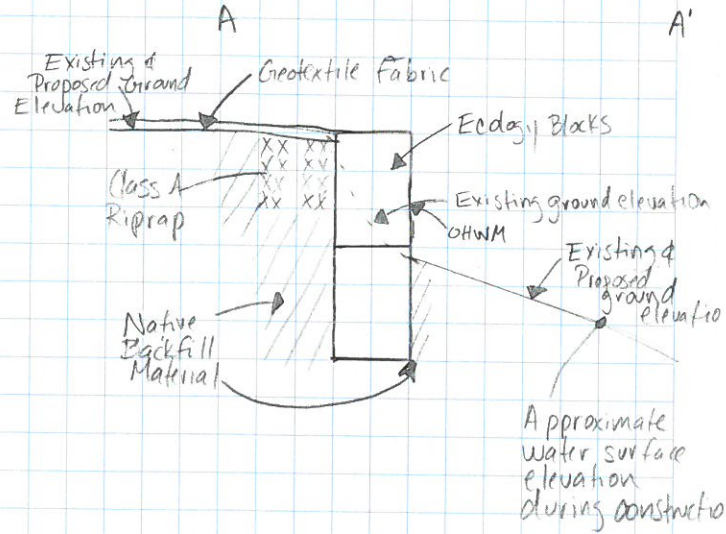 A
A'
Existing &
Proposed Ground
Elevation
Geotextile Fabric
Ecology Blocks
Class A
Riprap
XX XX
XX XX
XX XX
XX XX
Existing ground elevation
OHWM
Existing &
Proposed
ground
elevatio
Native
Backfill
Material
Approximate
water surface
elevation
during constructio